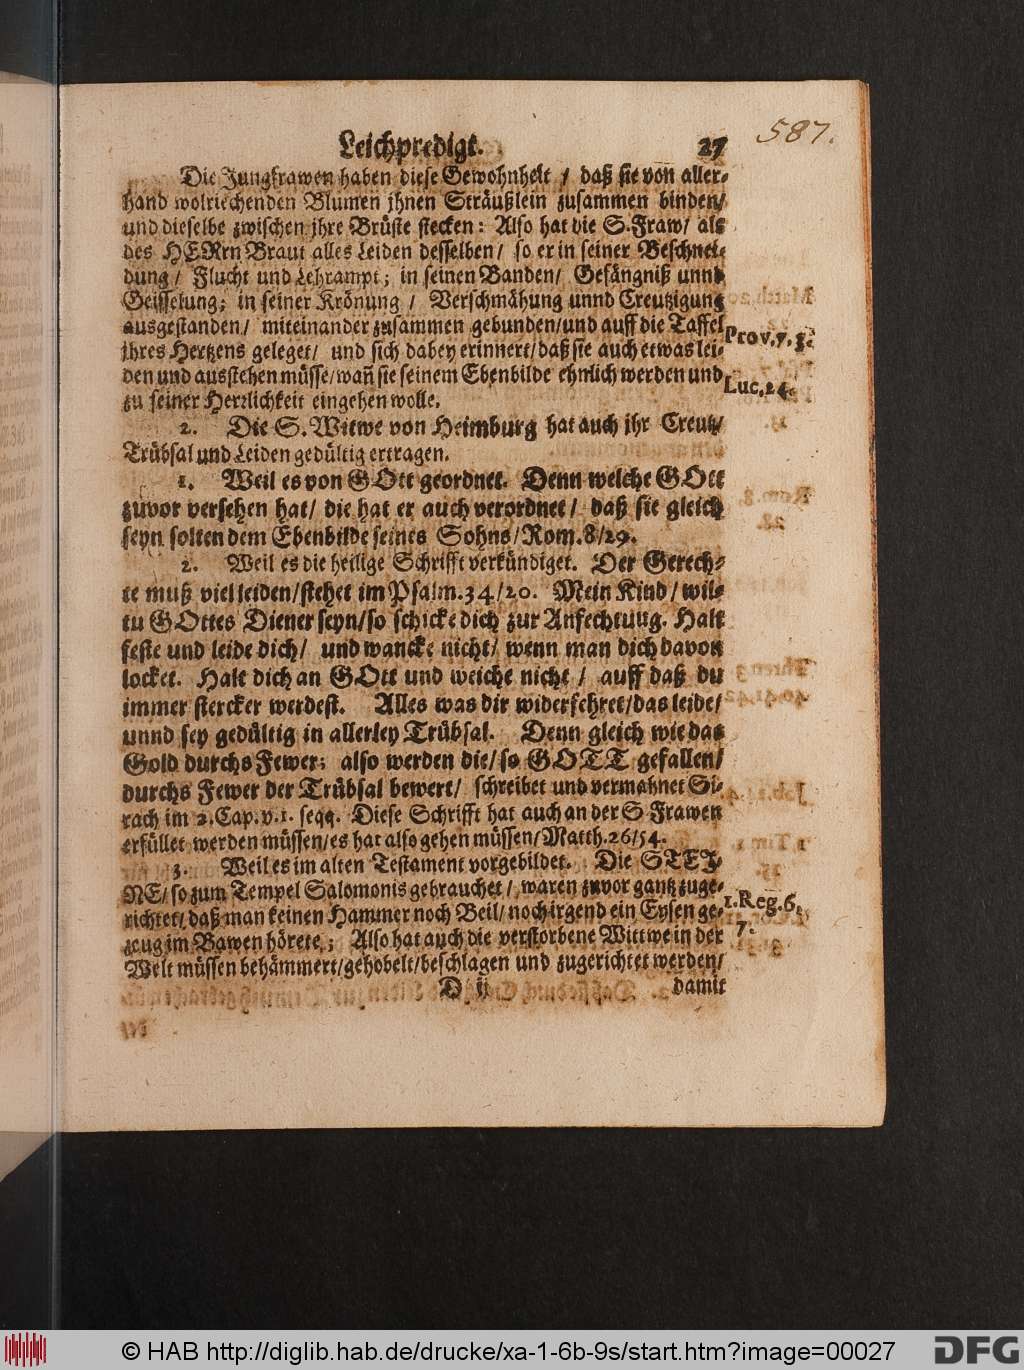 Leichpredigt. 27 587.
Die Jungfrawen haben diese Gewohnheit / daß sie von aller-
hand wolriechenden Blumen jhnen Sträußlein zusammen binden/
und dieselbe zwischen jhre Brüste stecken: Also hat die S. Fraw/ als
des HERrn Braut alles Leiden desselben/ so er in seiner Beschnei-
dung/ Flucht und Lehrampt; in seinen Banden/ Gefängniß unnd
Geisselung; in seiner Krönung / Verschmähung unnd Creutzigung
ausgestanden/ miteinander zusammen gebunden/und auff die Taffel
jhres Hertzens geleget/ und sich dabey erinnert/daß sie auch etwas lei-
Prov. 7. 3.
den und ausstehen müsse/wañ sie seinem Ebenbilde ehnlich werden und
Luc. 24.
zu seiner Herrlichkeit eingehen wolle.
2. Die S. Witwe von Heimburg hat auch jhr Creutz/
Trübsal und Leiden gedültig ertragen.
1. Weil es von GOtt geordnet. Denn welche GOtt
zuvor versehen hat/ die hat er auch verordnet/ daß sie gleich
seyn solten dem Ebenbilde seines Sohns/Rom. 8/29.
2. Weil es die heilige Schrifft verkündiget. Der Gerech-
te muß viel leiden/stehet im Psalm. 34/20. Mein Kind/ wil-
tu GOttes Diener seyn/so schicke dich zur Anfechtuug. Halt
feste und leide dich/ und wancke nicht/ wenn man dich davon
locket. Halt dich an GOtt und weiche nicht / auff daß du
immer stercker werdest. Alles was dir widerfehret/das leide/
unnd sey gedültig in allerley Trübsal. Denn gleich wie das
Gold durchs Fewer; also werden die/so GOTT gefallen/
durchs Fewer der Trübsal bewert/ schreibet und vermahnet Si-
rach im 2. Cap. v. 1. seqq. Diese Schrifft hat auch an der S Frawen
erfüllet werden müssen/es hat also gehen müssen/Matth. 26/54.
3. Weil es im alten Testament vorgebildet. Die STEI-
NE/ so zum Tempel Salomonis gebrauchet / waren zuvor gantz zuge-
1. Reg. 6.
richtet/ daß man keinen Hammer noch Beil/ noch irgend ein Eysen ge-
7.
zeug im Bawen hörete; Also hat auch die verstorbene Wittwe in der
Welt müssen behämmert/gehobelt/beschlagen und zugerichtet werden/
D ij damit
© HAB http://diglib.hab.de/drucke/xa-1-6b-9s/start.htm?image=00027
DFG